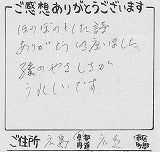 ご感想ありがとうございます
ほのぼのとした話
ありがとうございました。
孫のやさしさが
うれしいです。
ご住所 広島 都道府県 広島 市区町村